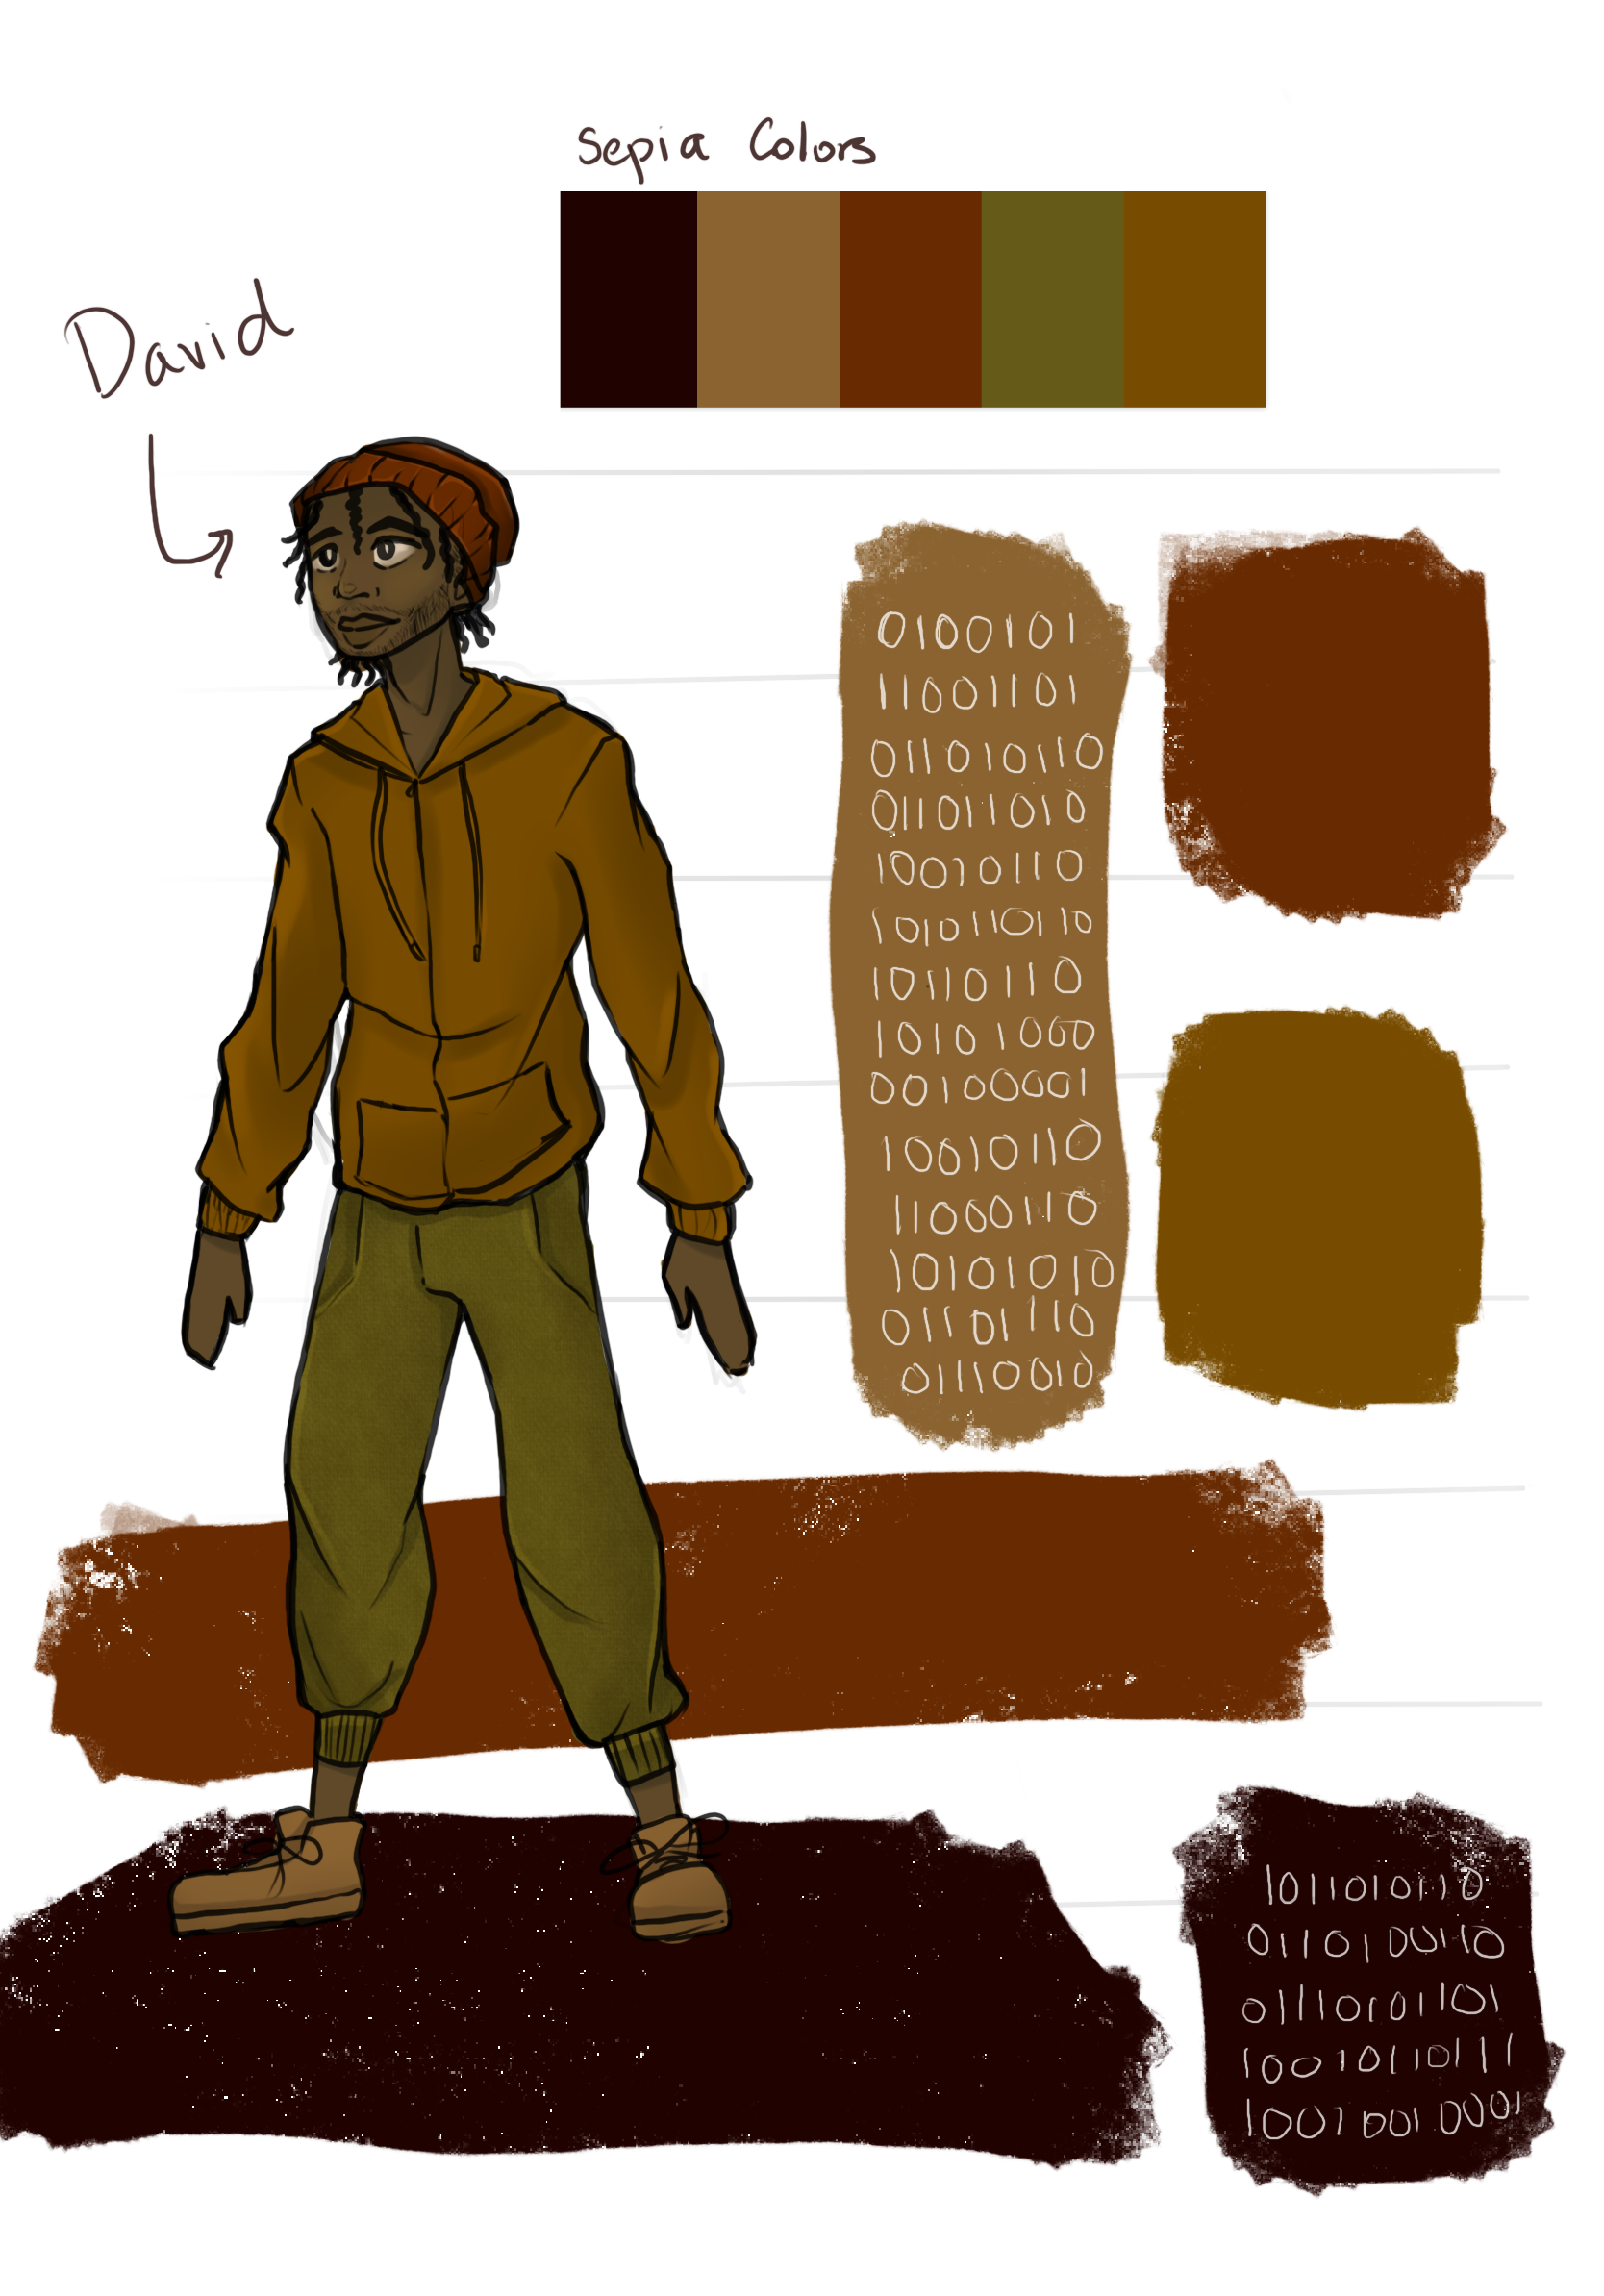 Sepia Colors
David
0100101
11001101
011010110
011011010
10010110
1010110110
10110110
10101000
00100001
10010110
11000110
10101010
01101110
01110010
1011010110
0110100110
01110101101
10010110111
10010010001